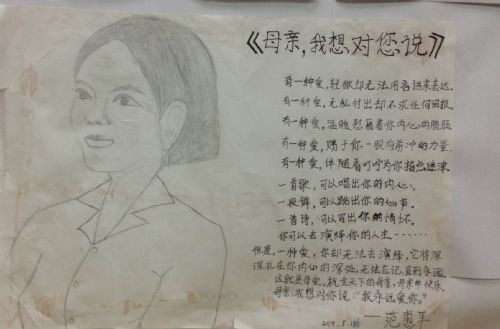 《母亲,我想对您说》
有一种爱,轻微却无法用言语来表达.
有一种爱,无私付出却不求任何回报.
有一种爱,温暖慰藉着你内心的脆弱
有一种爱,赐于你一股向前冲的力量.
有一种爱,伴随着叮咛为你指点迷津.
一首歌,可以唱出你的内心.
一段舞,可以跳出你的心声.
一首诗,可以写出你的情怀.
你可以去演绎你的人生……
但是,一种爱,你却无法去演绎,它将深
深扎在你内心的深处,无法忘记,直到永远
这就是母爱,祝全天下的母亲,母亲节快乐.
母亲,我想对你说:“我永远爱你.”
——范惠平
2019.5.